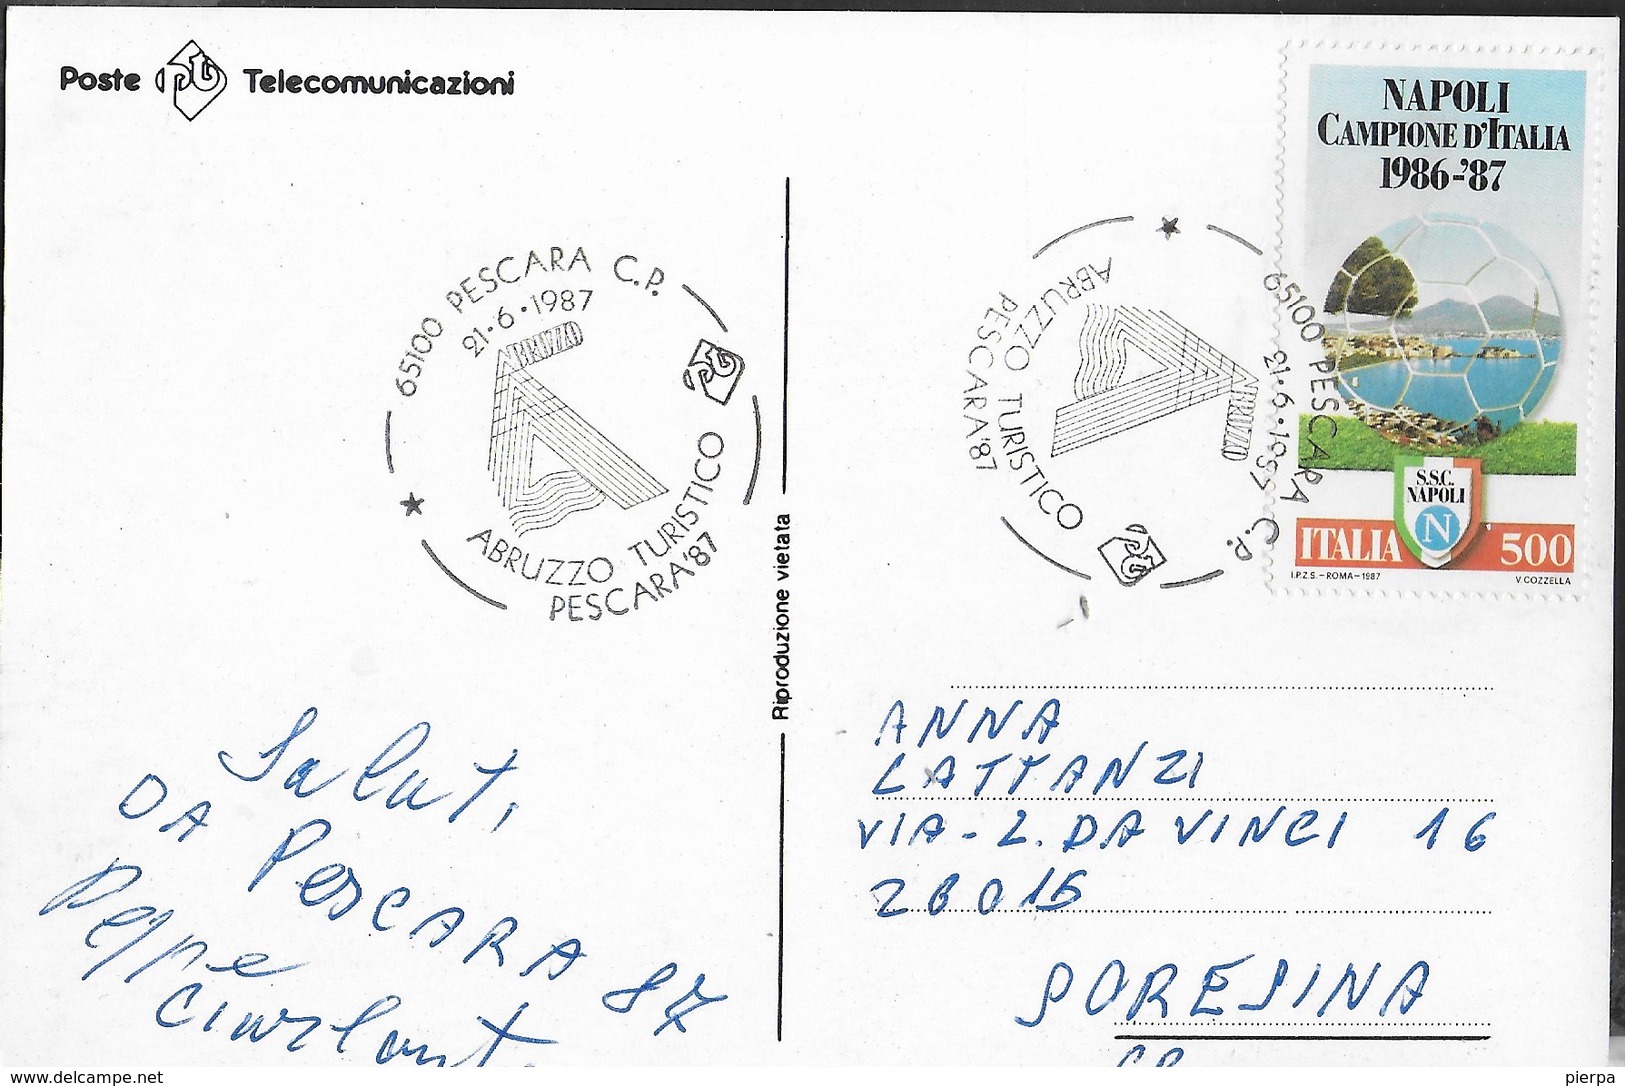 Poste Telecomunicazioni
NAPOLI
CAMPIONE D'ITALIA
1986-'87
S.S.C.
NAPOLI
N
ITALIA 500
I.P.Z.S.-ROMA-1987 V.COZZELLA
65100 PESCARA C.P.
21·6·1987
ABRUZZO
ABRUZZO TURISTICO
PESCARA'87
65100 PESCARA C.P.
21·6·1987
ABRUZZO
ABRUZZO TURISTICO
PESCARA'87
Riproduzione vietata
Saluti
DA PESCARA 87
Peppe
ANNA
LATTANZI
VIA-L. DA VINCI 16
26015
SORESINA
CR
www.delcampe.net
pierpa